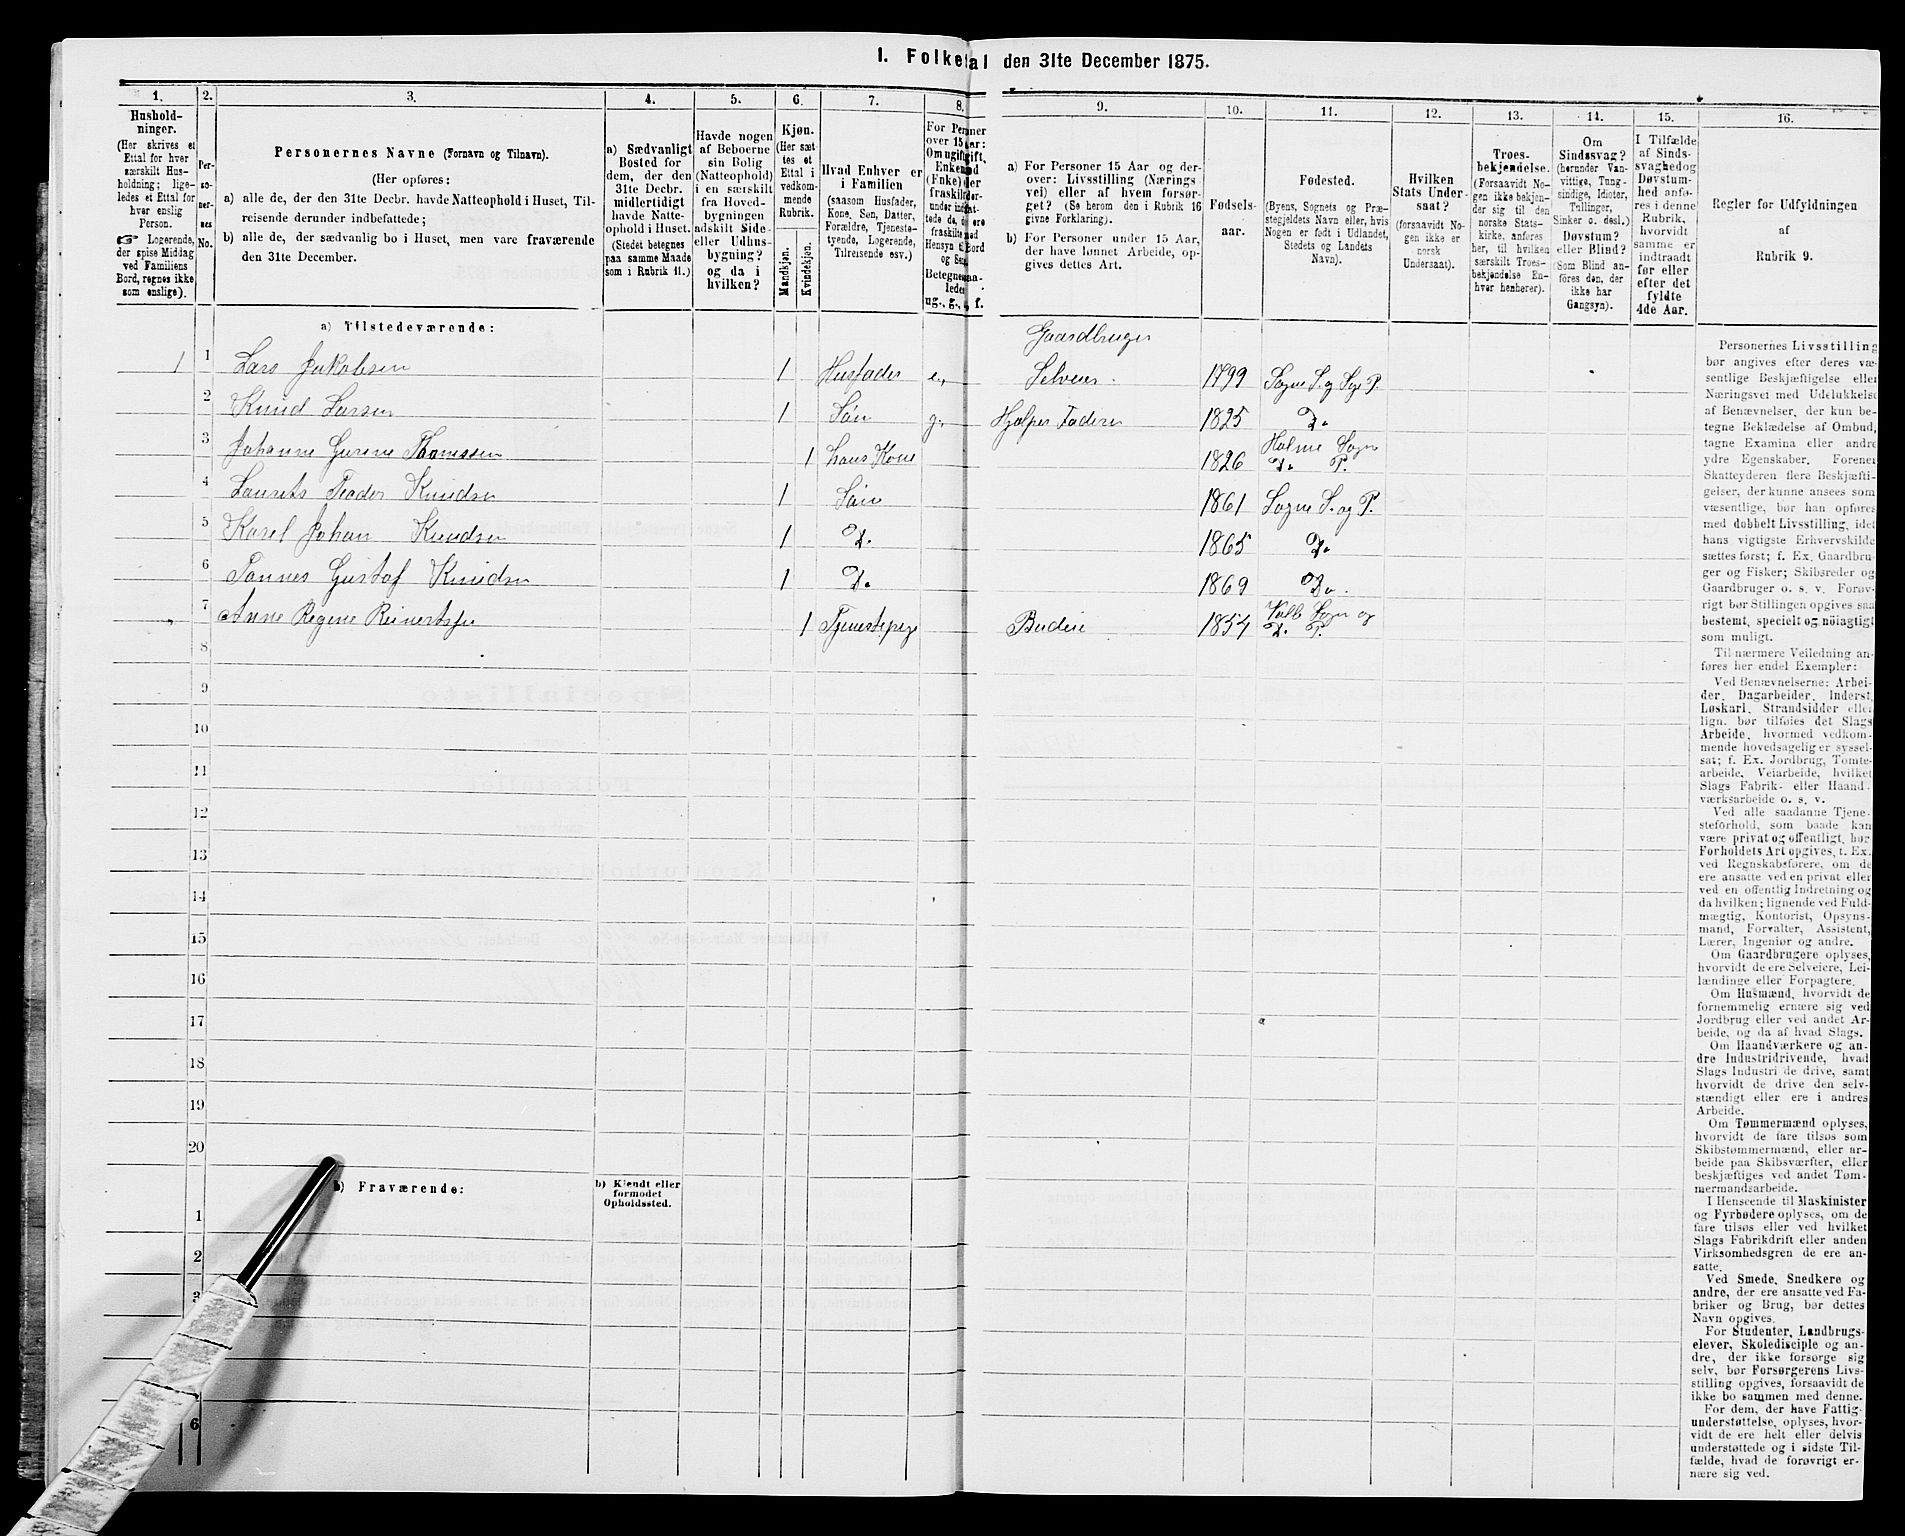 I. Folketal den 31te December 1875.
1.
Hushold-
ninger.
(Her skrives et
Ettal for hver
særskilt Hus-
holdning; lige-
ledes et Ettal for
hver enslig
Person.
☞ Logerende,
der spise Middag
ved Familiens
Bord, regnes ikke
som enslige).
2.
Per-
so-
ner-
nes
No.
3.
Personernes Navne (Fornavn og Tilnavn).
(Her opføres:
a) alle de, der den 31te Decbr. havde Natteophold i Huset, Til-
reisende derunder indbefattede;
b) alle de, der sædvanlig bo i Huset, men vare fraværende
den 31te December.
4.
a) Sædvanligt
Bosted for
dem, der den
31te Decbr.
midlertidigt
havde Natte-
ophold i Huset.
(Stedet betegnes
paa samme Maade
som i Rubrik 11.)
5.
Havde nogen
af Beboerne
sin Bolig
(Natteophold)
i en særskilt
fra Hoved-
bygningen
adskilt Side-
eller Udhus-
bygning?
og da i
hvilken?
6.
Kjøn.
(Her sæt-
tes et
Ettal i
vedkom-
mende
Rubrik.
Mandkjøn.
Kvindekjøn.
7.
Hvad Enhver er
i Familien
(saasom Husfader,
Kone, Søn, Datter,
Forældre, Tjeneste-
tyende, Logerende,
Tilreisende osv.).
8.
For Personer
over 15 Aar:
Om ugift, gift,
ug., g., f.
9.
a) For Personer 15 Aar og der-
over: Livsstilling (Nærings-
vei) eller af hvem forsør-
get? (Se herom den i Rubrik 16
givne Forklaring).
b) For Personer under 15 Aar,
der have lønnet Arbeide, op-
gives dettes Art.
10.
Fødsels-
aar.
11.
Fødested.
(Byens, Sognets og Præ-
stegjeldets Navn eller, hvis
Nogen er født i Udlandet,
Stedets og Landets
Navn).
12.
Hvilken
Stats Under-
saat?
(forsaavidt No-
gen ikke er
norsk
Undersaat).
13.
Troes-
bekjendelse.
(Forsaavidt No-
gen ikke bekjen-
der sig til den
norske Stats-
kirke, anføres
her, til hvilken
særskilt Troes-
bekjendelse En-
hver henhører).
14.
Om
Sindssvag?
(herunder Van-
vittige, Tung-
sindige, Idioter,
Tullinger,
Sinker o. desl.)
Døvstum?
eller Blind?
(Som Blind an-
føres den, der
ikke har
Gangsyn).
15.
I Tilfælde
af Sinds-
svaghed og
Døvstum-
hed anfø-
res i denne
Rubrik,
hvorvidt
samme er
indtraadt
før eller
efter det
fyldte
4de Aar.
16.
Regler for Udfyldningen
af
Rubrik 9.
a) Tilstedeværende:
1 1 Lars Jakobsen 1 Husfader e., Gaardbruger
Selveier. 1799 Sogne S. og Sog P.
2 Knud Larsen 1 Søn g. Hjelper Faderen 1825 Do
3 Johanne Gurine Thomssen 1 hans Kone 1826 Halme Sogn
Do P.
4 Laurits Teodor Knudsen 1 Søn 1861 Sogne S. og P.
5 Karel Johan Knudsen 1 D. 1865 Do
6 Tønnes Gustaf Knudsen 1 Do 1869 Do.
7 Anne Regene Reinertsen 1 Tjenestepige Budeie 1854 Valle Sogn og
D. P.
8
9
10
11
12
13
14
15
16
17
18
19
20
b) Fraværende:
b) Kjendt eller
formodet
Opholdssted.
1
2
3
6
Personernes Livsstilling
bør angives efter deres væ-
sentlige Beskjæftigelse eller
Næringsvei med Udelukkelse
af Benævnelser, der kun be-
tegne Beklædelse af Ombud,
tagne Examina eller andre
ydre Egenskaber. Forener
Skatteyderen flere Beskjæfti-
gelser, der kunne ansees som
væsentlige, bør han opføres
med dobbelt Livsstilling, idet
hans vigtigste Erhvervskilde
sættes først; f. Ex. Gaardbru-
ger og Fisker; Skibsreder og
Gaardbruger o. s. v. Forøv-
rigt bør Stillingen opgives saa
bestemt, specielt og nøiagtigt
som muligt.
Til nærmere Veiledning an-
føres her endel Exempler:
Ved Benævnelserne: Arbei-
der, Dagarbeider, Inderst,
Løskarl, Strandsidder eller
lign. bør tilføies det Slags
Arbeide, hvormed vedkom-
mende hovedsagelig er syssel-
sat; f. Ex. Jordbrug, Tomte-
arbeide, Veiarbeide, hvilket
Slags Fabrik- eller Haand-
værksarbeide o. s. v.
Ved alle saadanne Tjene-
steforhold, som baade kan
være privat og offentligt, bør
Forholdets Art opgives, t. Ex.
ved Regnskabsførere, om de
ere ansatte ved en privat eller
ved en offentlig Indretning og
da hvilken; lignende ved Fuld-
mægtig, Kontorist, Opsyns-
mand, Forvalter, Assistent,
Lærer, Ingeniør og andre.
Om Gaardbrugere oplyses,
hvorvidt de ere Selveiere, Lei-
lændinge eller Forpagtere.
Om Husmænd, hvorvidt de
fornemmelig ernære sig ved
Jordbrug eller ved andet Ar-
beide, og da af hvad Slags.
Om Haandværkere og an-
dre Industridrivende, hvad
Slags Industri de drive, samt
hvorvidt de drive den selv-
stændigt eller ere i andres
Arbeide.
Om Tømmermænd oplyses,
hvorvidt de fare tilsøs som
Skibstømmermænd, eller ar-
beide paa Skibsværfter, eller
beskjæftiges ved andet Tøm-
mermandsarbeide.
I Henseende til Maskinister
og Fyrbødere oplyses, om de
fare tilsøs eller ved hvilket
Slags Fabrikdrift eller anden
Virksomhedsgren de ere an-
satte.
Ved Smede, Snedkere og
andre, der ere ansatte ved Fa-
briker og Brug, bør dettes
Navn opgives.
For Studenter, Landbrugs-
elever, Skoledisciple og an-
dre, der ikke forsørge sig
selv, bør Forsørgerens Livs-
stilling opgives, forsaavidt de
ikke bo sammen med denne.
For dem, der have Fattig-
understøttelse, oplyses, hvor-
vidt de ere helt eller delvis
understøttede og i sidste Til-
fælde, hvad de forøvrigt er-
nære sig ved.